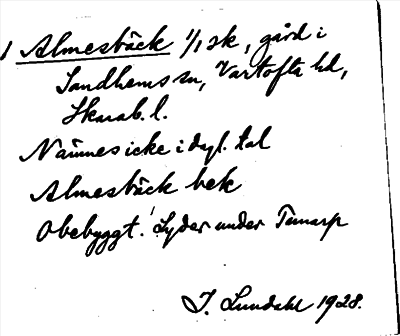 1 Almesbäck 1/1 sk, gård i
Sandhems sn, Vartofta hd,
Skarab. l.
Nämnes icke i dagl. tal
Almesbäck bek
Obebyggt. Lyder under Temarp
J. Lundahl 1928.